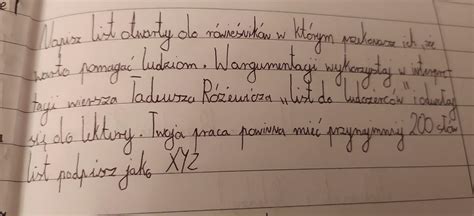 Napisz list otwarty do rówieśników w którym przekonasz ich, że
warto pomagać ludziom. W argumentacji wykorzystaj w interpre
tacji wiersza Tadeusza Różewicza „list do ludożerców" i odwołaj
się do lektury. Twoja praca powinna mieć przynajmniej 200 słów
list podpisz jako XYZ